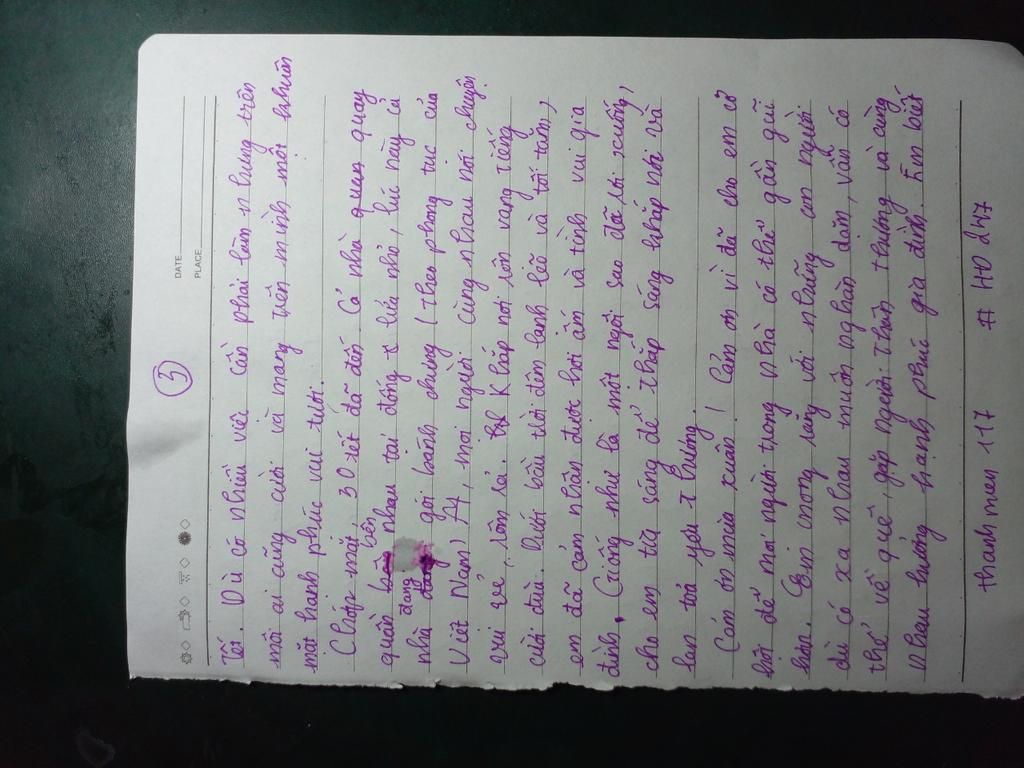 DATE
PLACE
3
Tết. Dù có nhiều việc cần phải làm nhưng trên
môi ai cũng cười và mang trên mình một khuôn
mặt hạnh phúc vui tươi.
Chớp mắt, 30 tết đã đến. Cả nhà quan quay
quần bên nhau tại đống lửa nhỏ, lúc này cả
nhà đang gói bánh chưng (theo phong tục của
Việt Nam) A, mọi người cùng nhau nói chuyện
vui vẻ, rôm rả. Khắp nơi rộn vang tiếng
cười đùa. Dưới bầu trời đêm lạnh lẽo và tối tăm,
em đã cảm nhận được hơi ấm và tình vai gia
đình. Giống như là một ngôi sao đã rơi xuống,
cho em tia sáng để thắp sáng khắp nơi và
lan toả yêu thương.
Cảm ơn mùa xuân! Cảm ơn vì đã cho em cơ
hội để mọi người trong nhà có thể gần gũi
hơn. Em mong rằng với những con người
dù có xa nhau muôn nghàn dặm, vẫn có
thể về quê, gặp người thân thương và cùng
nhau hưởng hạnh phúc gia đình. Em biết
thanhmen 117 # HD 247